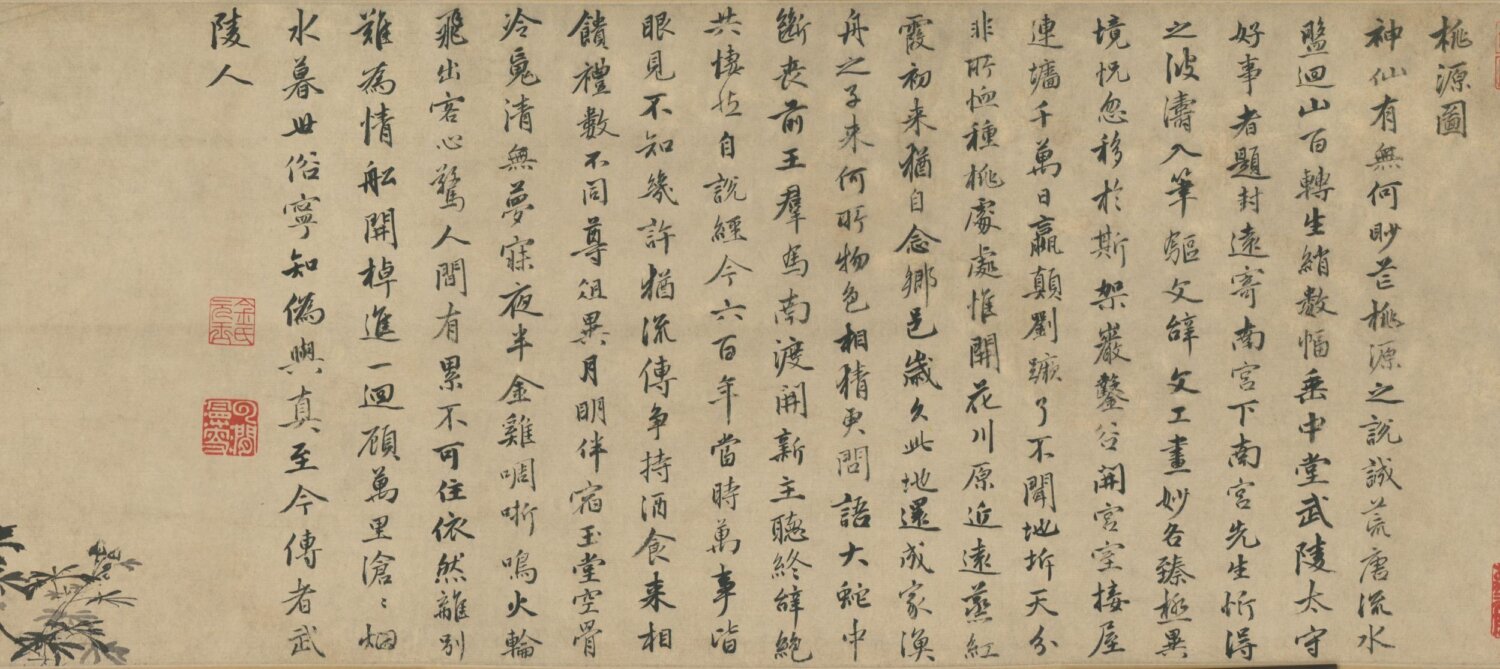 桃源圖
神仙有無何眇芒桃源之說誠荒唐流水
盤迴山百轉生綃數幅垂中堂武陵太守
好事者題封遠寄南宮下南宮先生忻得
之波濤入筆驅文辭文工畫妙各臻極異
境怳忽移於斯架巖鑿谷開宮室接屋
連墻千萬日嬴顛劉蹶了不聞地坼天分
非所恤種桃處處惟開花川原近遠蒸紅
霞初来猶自念鄉邑歲久此地還成家漁
舟之子来何所物色相猜更問語大蛇中
斷喪前王羣馬南渡開新主聽終辭絕
共悽然自說經今六百年當時萬事皆
眼見不知幾許猶流傳爭持酒食来相
饋禮數不同尊俎異月明伴宿玉堂空骨
冷魂清無夢寐夜半金雞啁哳鳴火輪
飛出客心驚人間有累不可住依然離別
難為情船開棹進一迴顧萬里滄〻烟
水暮世俗寧知偽與真至今傳者武
陵人